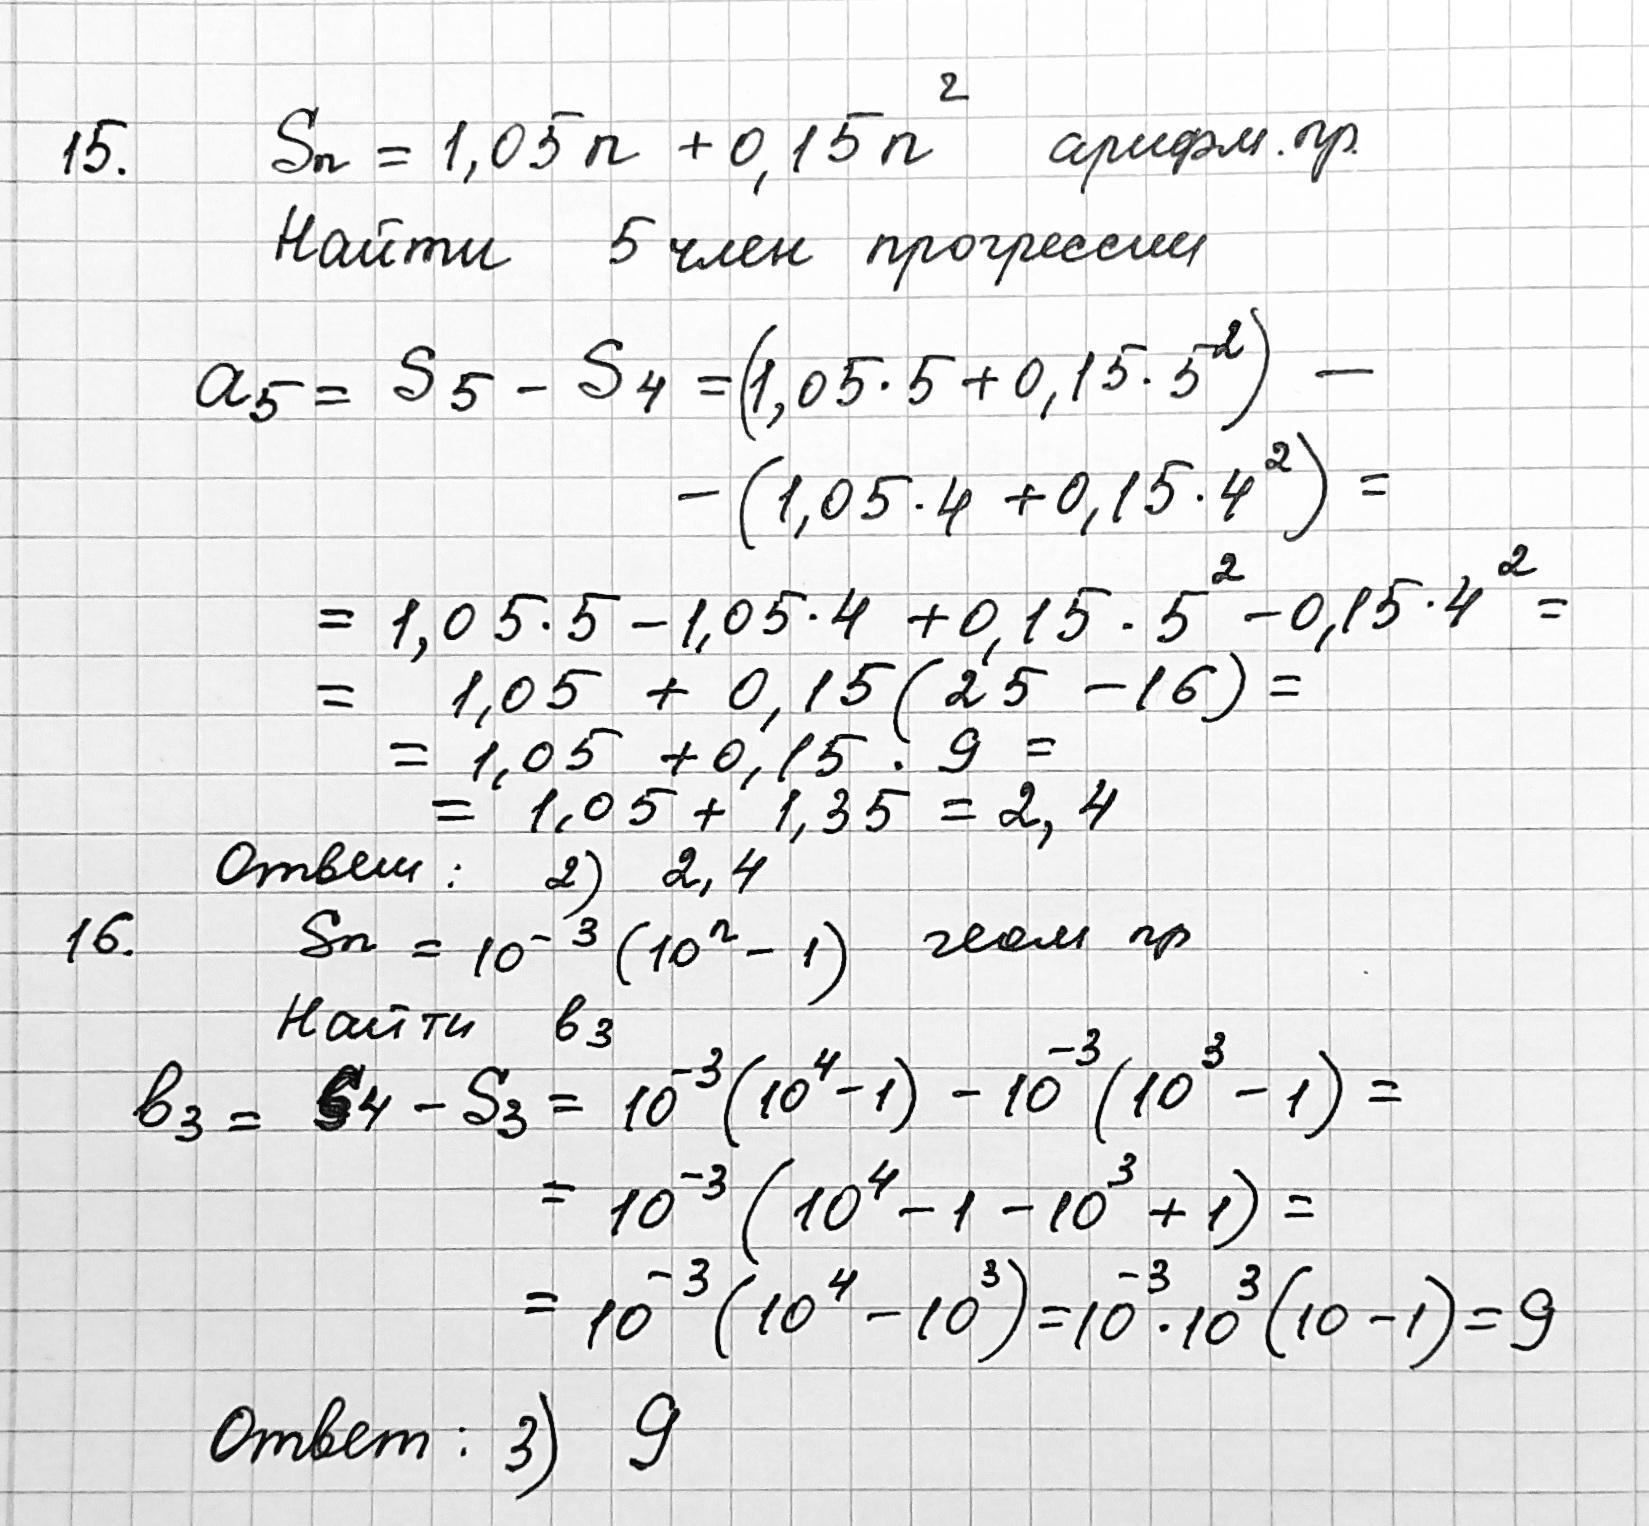 15. Sₙ = 1,05n + 0,15n² арифм. пр.
Найти 5 член прогрессии
a₅ = S₅ - S₄ = (1,05·5 + 0,15·5²) -
- (1,05·4 + 0,15·4²) =
= 1,05·5 - 1,05·4 + 0,15·5² - 0,15·4² =
= 1,05 + 0,15(25 - 16) =
= 1,05 + 0,15·9 =
= 1,05 + 1,35 = 2,4
Ответ: 2) 2,4
16. Sₙ = 10⁻³(10ⁿ - 1) геом пр
Найти b₃
b₃ = S₄ - S₃ = 10⁻³(10⁴ - 1) - 10⁻³(10³ - 1) =
= 10⁻³(10⁴ - 1 - 10³ + 1) =
= 10⁻³(10⁴ - 10³) = 10⁻³·10³(10 - 1) = 9
Ответ: 3) 9